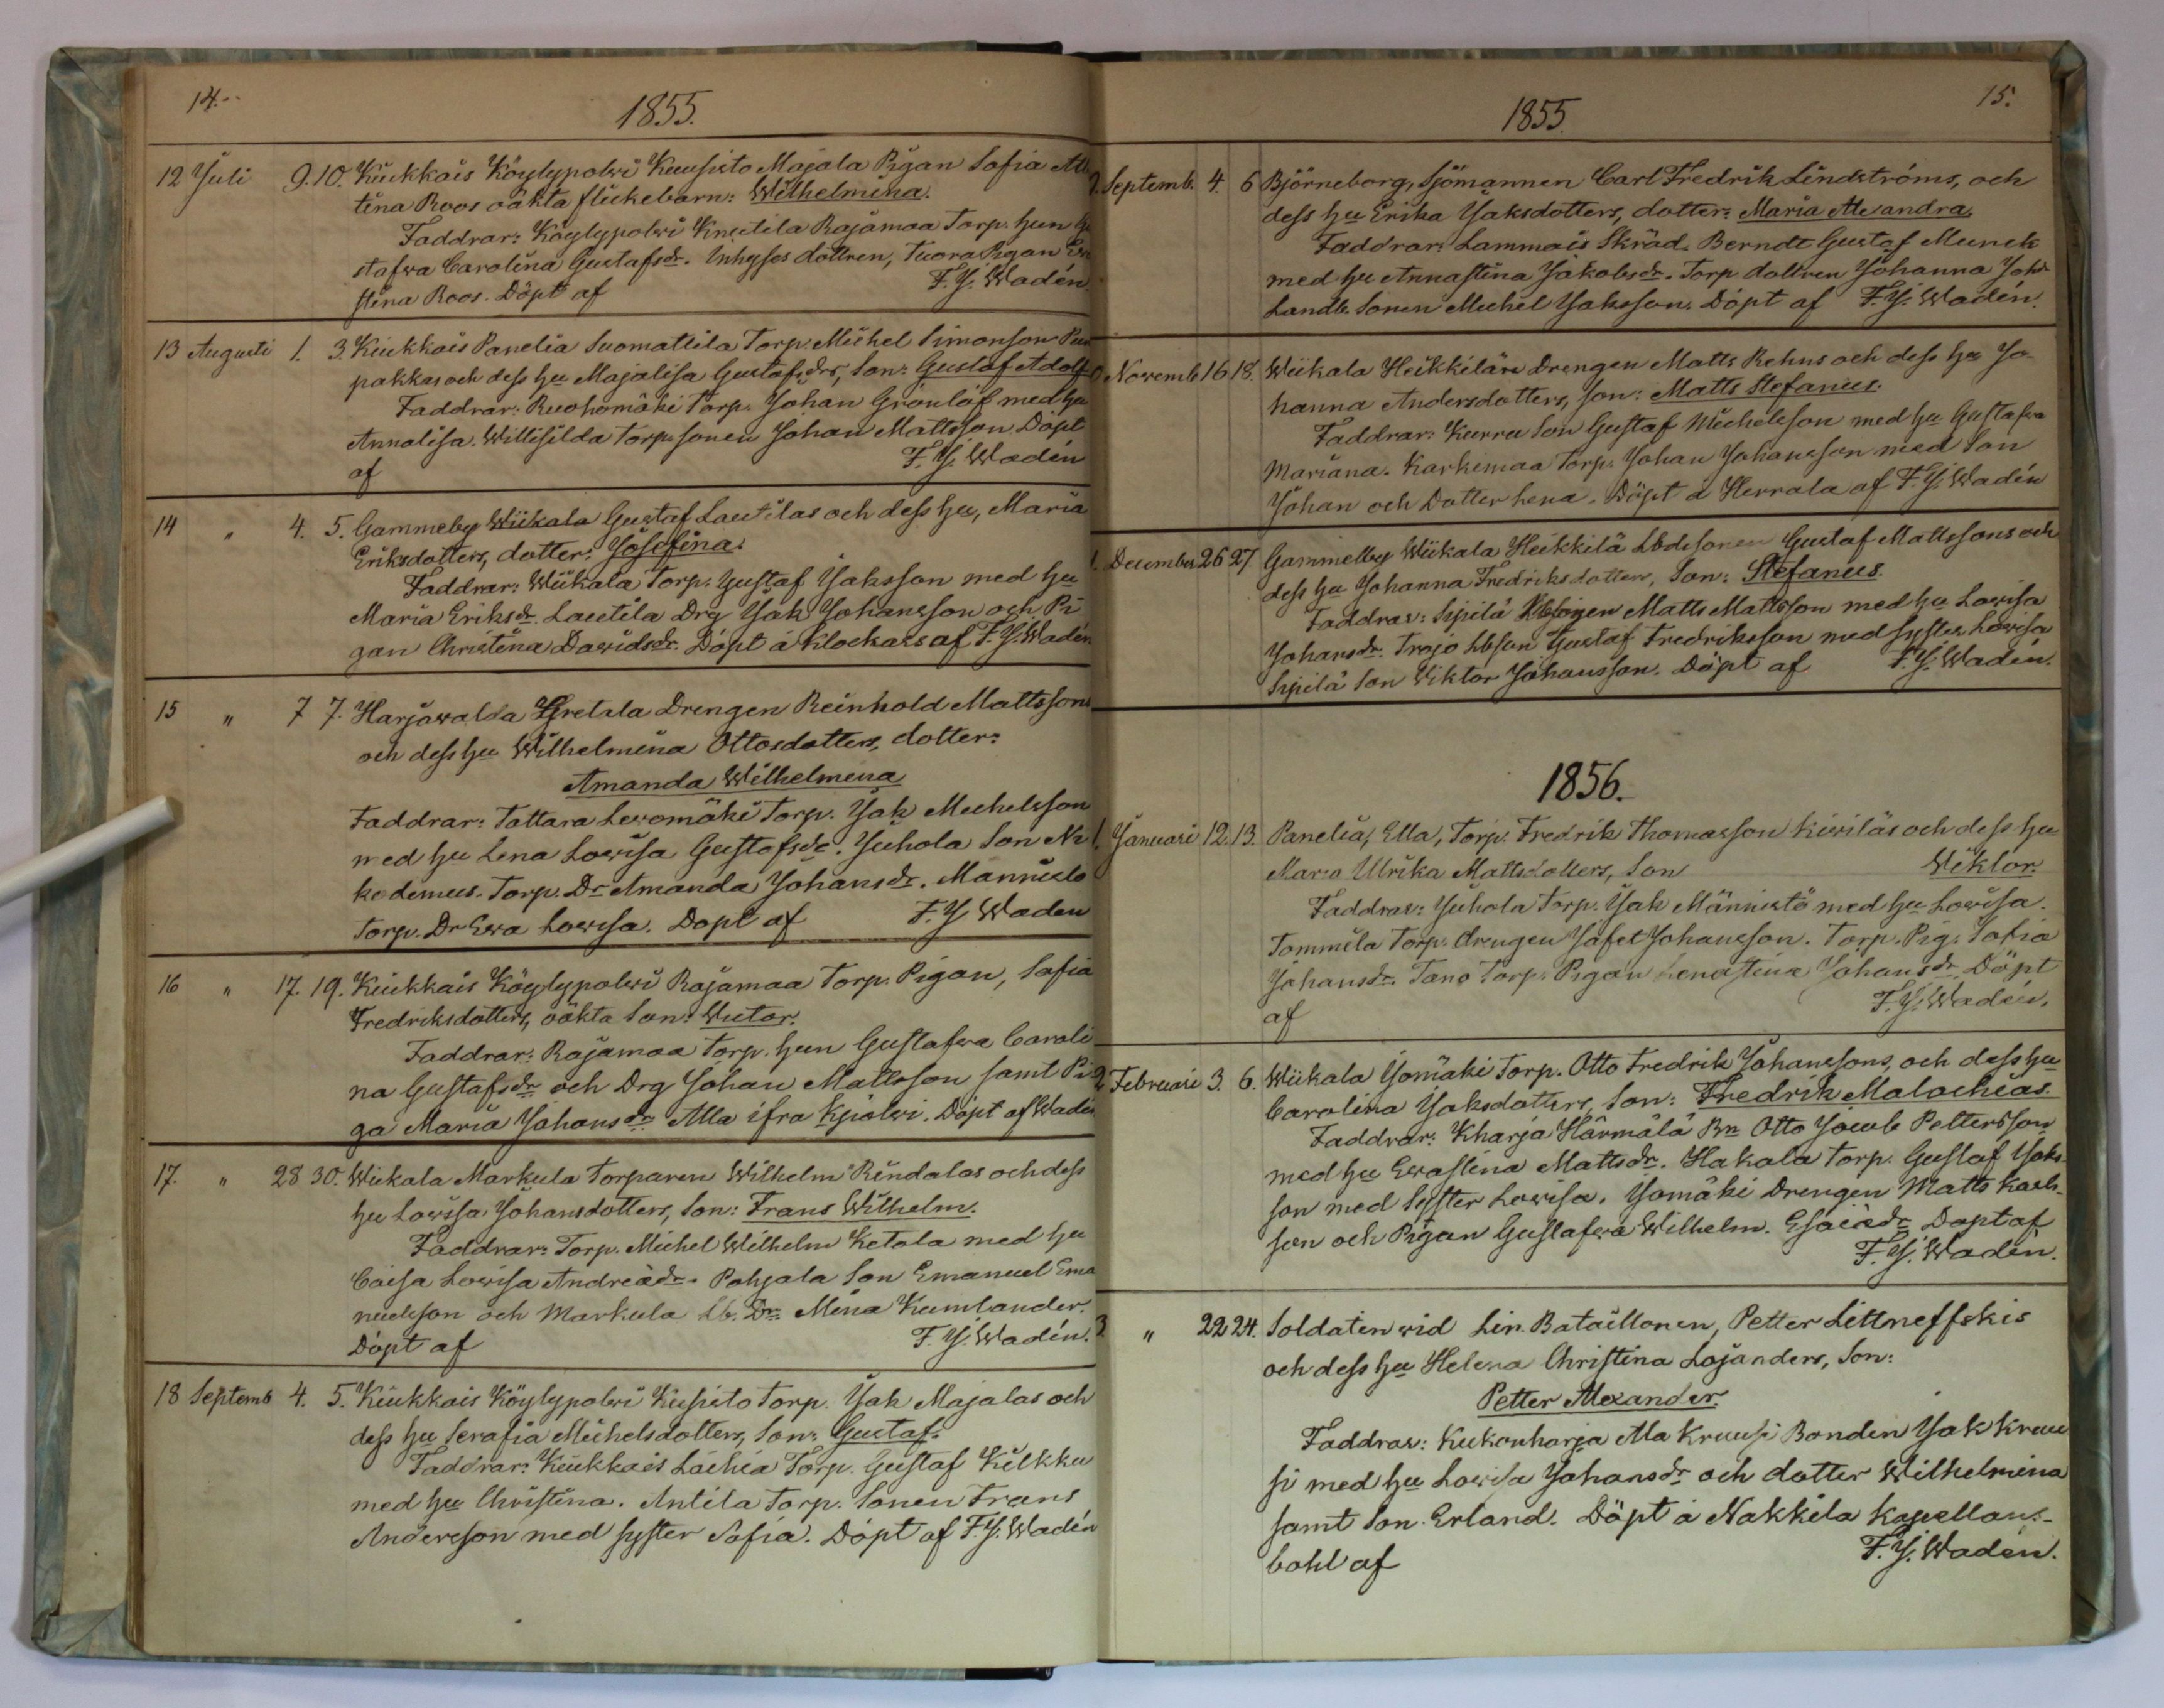 14.
1855.
12 Juli 9. 10. Kiukkais Köylypolvi Kuusisto Majala Pigan Sofia
tina Roos oäkta flickebarn: Wilhelmina.
Faddrar: Köylypolvi Knutila Rajamaa Torp. hun Gu
stafva Carolina Gustafsdr. Inhyses dottren, Tuora Pigan
stina Roos. Döpt af F. J. Wadén.
13 Augusti 1. 3. Kiukkais Panelia Suomattila Torp. Michel Simonson
pakkas och dess hu Majalisa Gustafsdrs, Son: Gustaf Adolf
Faddrar: Ruohomäki Torp. Johan Grönlöf med hu
Annalisa. Willisilda Torpsonen Johan Mattsson Döpt
af F. J. Wadén
14 " 4. 5. Gammelby Wiikala Gustaf Lautilas och dess hu, Maria
Eriksdotters, dotter: Josefina.
Faddrar: Wiikala Torp. Gustaf Jaksson med hu
Maria Eriksdr. Lautila Drg Jak Johansson och Pi
gan Christina Davidsdr. Döpt å Klockars af F. J. Wadén
15 " 7 7. Harjawalda Hretala Drengen Reinhold Mattssons
och dess hu Wilhelmina Ottosdotters, dotter:
Amanda Wilhelmina
Faddrar: Tattara Levomäki Torp. Jak Michelsson
med hu Lena Lovisa Gustafsdr. Juhola Son Ni
kodemus. Torp. Dr Amanda Johansdr. Mannisto
Torp. Dr Ewa Lovisa. Döpt af F. J. Waden
16 " 17. 19. Kiukkais Köylypolvi Rajamaa Torp. Pigan, Sofia
Fredriksdotters, oäkta Son: Victor.
Faddrar: Rajamaa Torp. hun Gustafva Caroli
na Gustafsdr och Drg Johan Mattsson samt Pi
ga Maria Johansdr Alla ifra Kjiolvi. Döpt af Wadén
17. " 28 30. Wiikala Markula Torparen Wilhelm Rindalas och dess
hu Lovisa Johansdotters, Son: Frans Wilhelm.
Faddrar: Torp. Michel Wilhelm Ketola med hu
Caisa Lovisa Andreädr. Pohjala Son Emanuel Ema
nuelsson och Markula Lb. Dr. Mina Kumlander.
Döpt af F. J. Wadén.
18 Septemb 4. 5. Kiukkais Köylypolvi Kusisto Torp. Jak Majalas och
dess hu Serafia Michelsdotters, Son: Gustaf.
Faddrar: Kiukkais Laihia Torp. Gustaf Kilkku
med hu Christina. Antila Torp. Sonen Frans
Andersson med syster Sofia. Döpt af F. J. Wadén
15.
1855.
9. Septemb. 4. 6 Björneborg, Sjömannen Carl Fredrik Lindströms, och
dess hu Erika Jaksdotters, dotter: Maria Alexandra.
Faddrar: Lammais Skräd. Berndt Gustaf Munck
med hu Annastina Jakobsdr. Torp dottren Johanna Johdr
Landb. Sonen Michel Jaksson. Döpt af F. J. Wadén.
0 Novemb 16. 18. Wiikala Heikkilän Drengen Matts Rehns och dess hu Jo-
hanna Andersdotters, Son: Matts Stefanus.
Faddrar: Kurru Son Gustaf Michelsson med hu Gustafva
Mariana. Karkimaa Torp. Johan Johansson med Son
Johan och Dotter Lena. Döpt å Herrala af F. J. Wadén
1. December 26 27 Gammelby Wiikala Heikkilä Lbdsonen Gustaf Mattssons och
dess hu Johanna Fredriksdotters, Son: Stefanus.
Faddrar: Sipilä Matts Mattsson med hu Lovisa
Johansdr. Trojo Lbson Gustaf Fredriksson med syster Lovisa
Sipilä Son Wiktor Johansson. Döpt af F. J. Wadén.
1856.
1. Januari 12. 13. Panelia, Ella, Torp. Fredrik Thomasson Kiviläs och dess hu
Maria Ulrika Mattsdotters, Son Wiktor.
Faddrar: Juhola Torp. Jak Männistö med hu Lovisa.
Tommila Torp. drengen Jafet Johansson. Torp. Pig. Sofia
Johansdr. Tano Torp. Pigan Lenastina Johansdr Döpt
af F. J. Wadén.
2. Februari 3. 6. Wiikala Jomäki Torp. Otto Fredrik Johanssons, och dess hu
Carolina Jaksdotters, Son: Fredrik Malachias.
Faddrar: Kharja Härmälä Bn Otto Jacob Pettersson
med hu Evastina Mattsdr. Hakala Torp. Gustaf Jaks-
son med Syster Lovisa. Jomäki Drengen Matts Karls-
son och Pigan Gustafva Wilhelm. Esaiädr Döpt af
F. J. Wadén.
3 " 22 24. Soldaten vid Lin. Bataillonen, Petter Littneffskis
och dess hu Helena Christina Lojanders, Son:
Petter Alexander.
Faddrar: Kukonharja Ala Kruusi Bonden Jak Kruu
si med hu Lovisa Johansdr och dotter Wilhelmina
samt Son Erland. Döpt å Nakkila Kapellans-
bohl af F. J. Wadén.